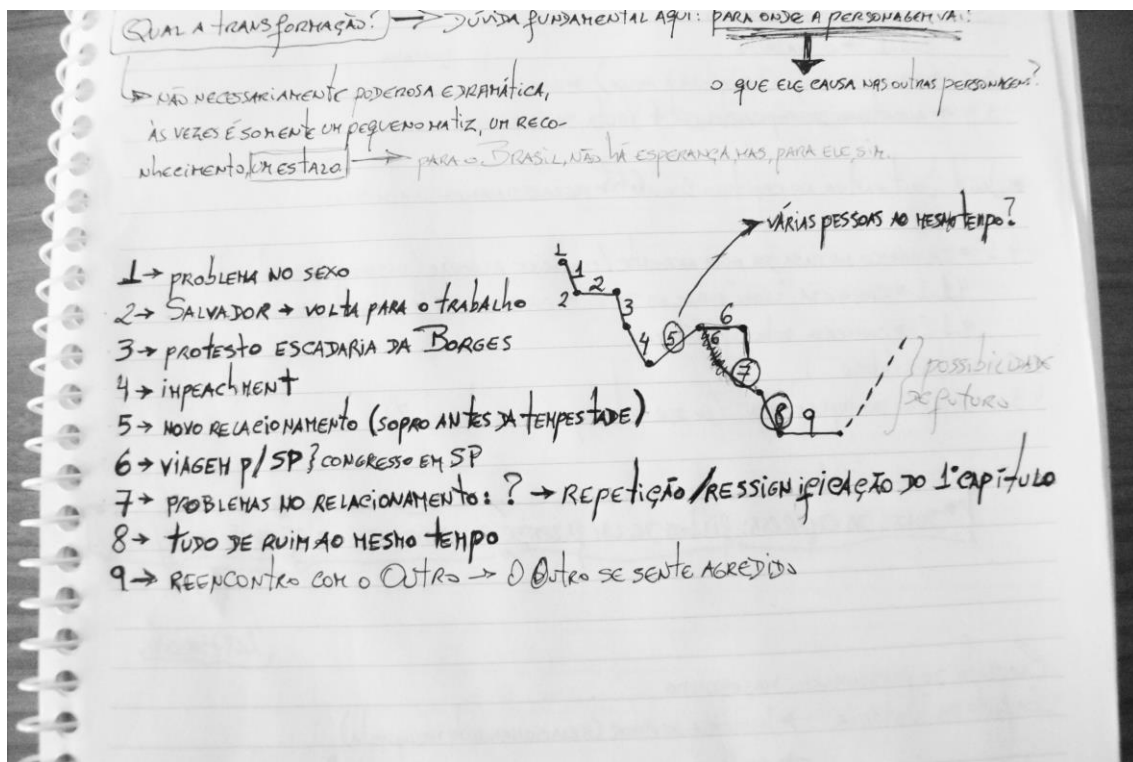 QUAL A TRANSFORMAÇÃO? → DÚVIDA FUNDAMENTAL AQUI: PARA ONDE A PERSONAGEM VAI?
O QUE ELE CAUSA NAS OUTRAS PERSONAGENS?
NÃO NECESSARIAMENTE PODEROSA E DRAMÁTICA,
ÀS VEZES É SOMENTE UM PEQUENO MATIZ, UM RECO-
NHECIMENTO, → PARA O BRASIL, NÃO HÁ ESPERANÇA MAS, PARA ELE, SIM.
VÁRIAS PESSOAS AO MESMO TEMPO?
1 → PROBLEMA NO SEXO
2 → SALVADOR → VOLTA PARA O TRABALHO
3 → PROTESTO ESCADARIA DA BORGES
4 → IMPEACHMENT
5 → NOVO RELACIONAMENTO (SOPRO ANTES DA TEMPESTADE)
6 → VIAGEM P/ SP } CONGRESSO EM SP
7 → PROBLEMAS NO RELACIONAMENTO: ? → REPETIÇÃO/RESSIGNIFICAÇÃO DO 1º CAPÍTULO
8 → TUDO DE RUIM AO MESMO TEMPO
9 → REENCONTRO COM O OUTRO → O OUTRO SE SENTE AGREDIDO
1
1
2
2
3
4
5
6
6
7
8
9
} POSSIBILIDADE
DE FUTURO